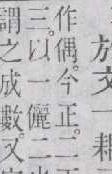 於交一耦
作偶今正二
三以一儷二
謂之成數又